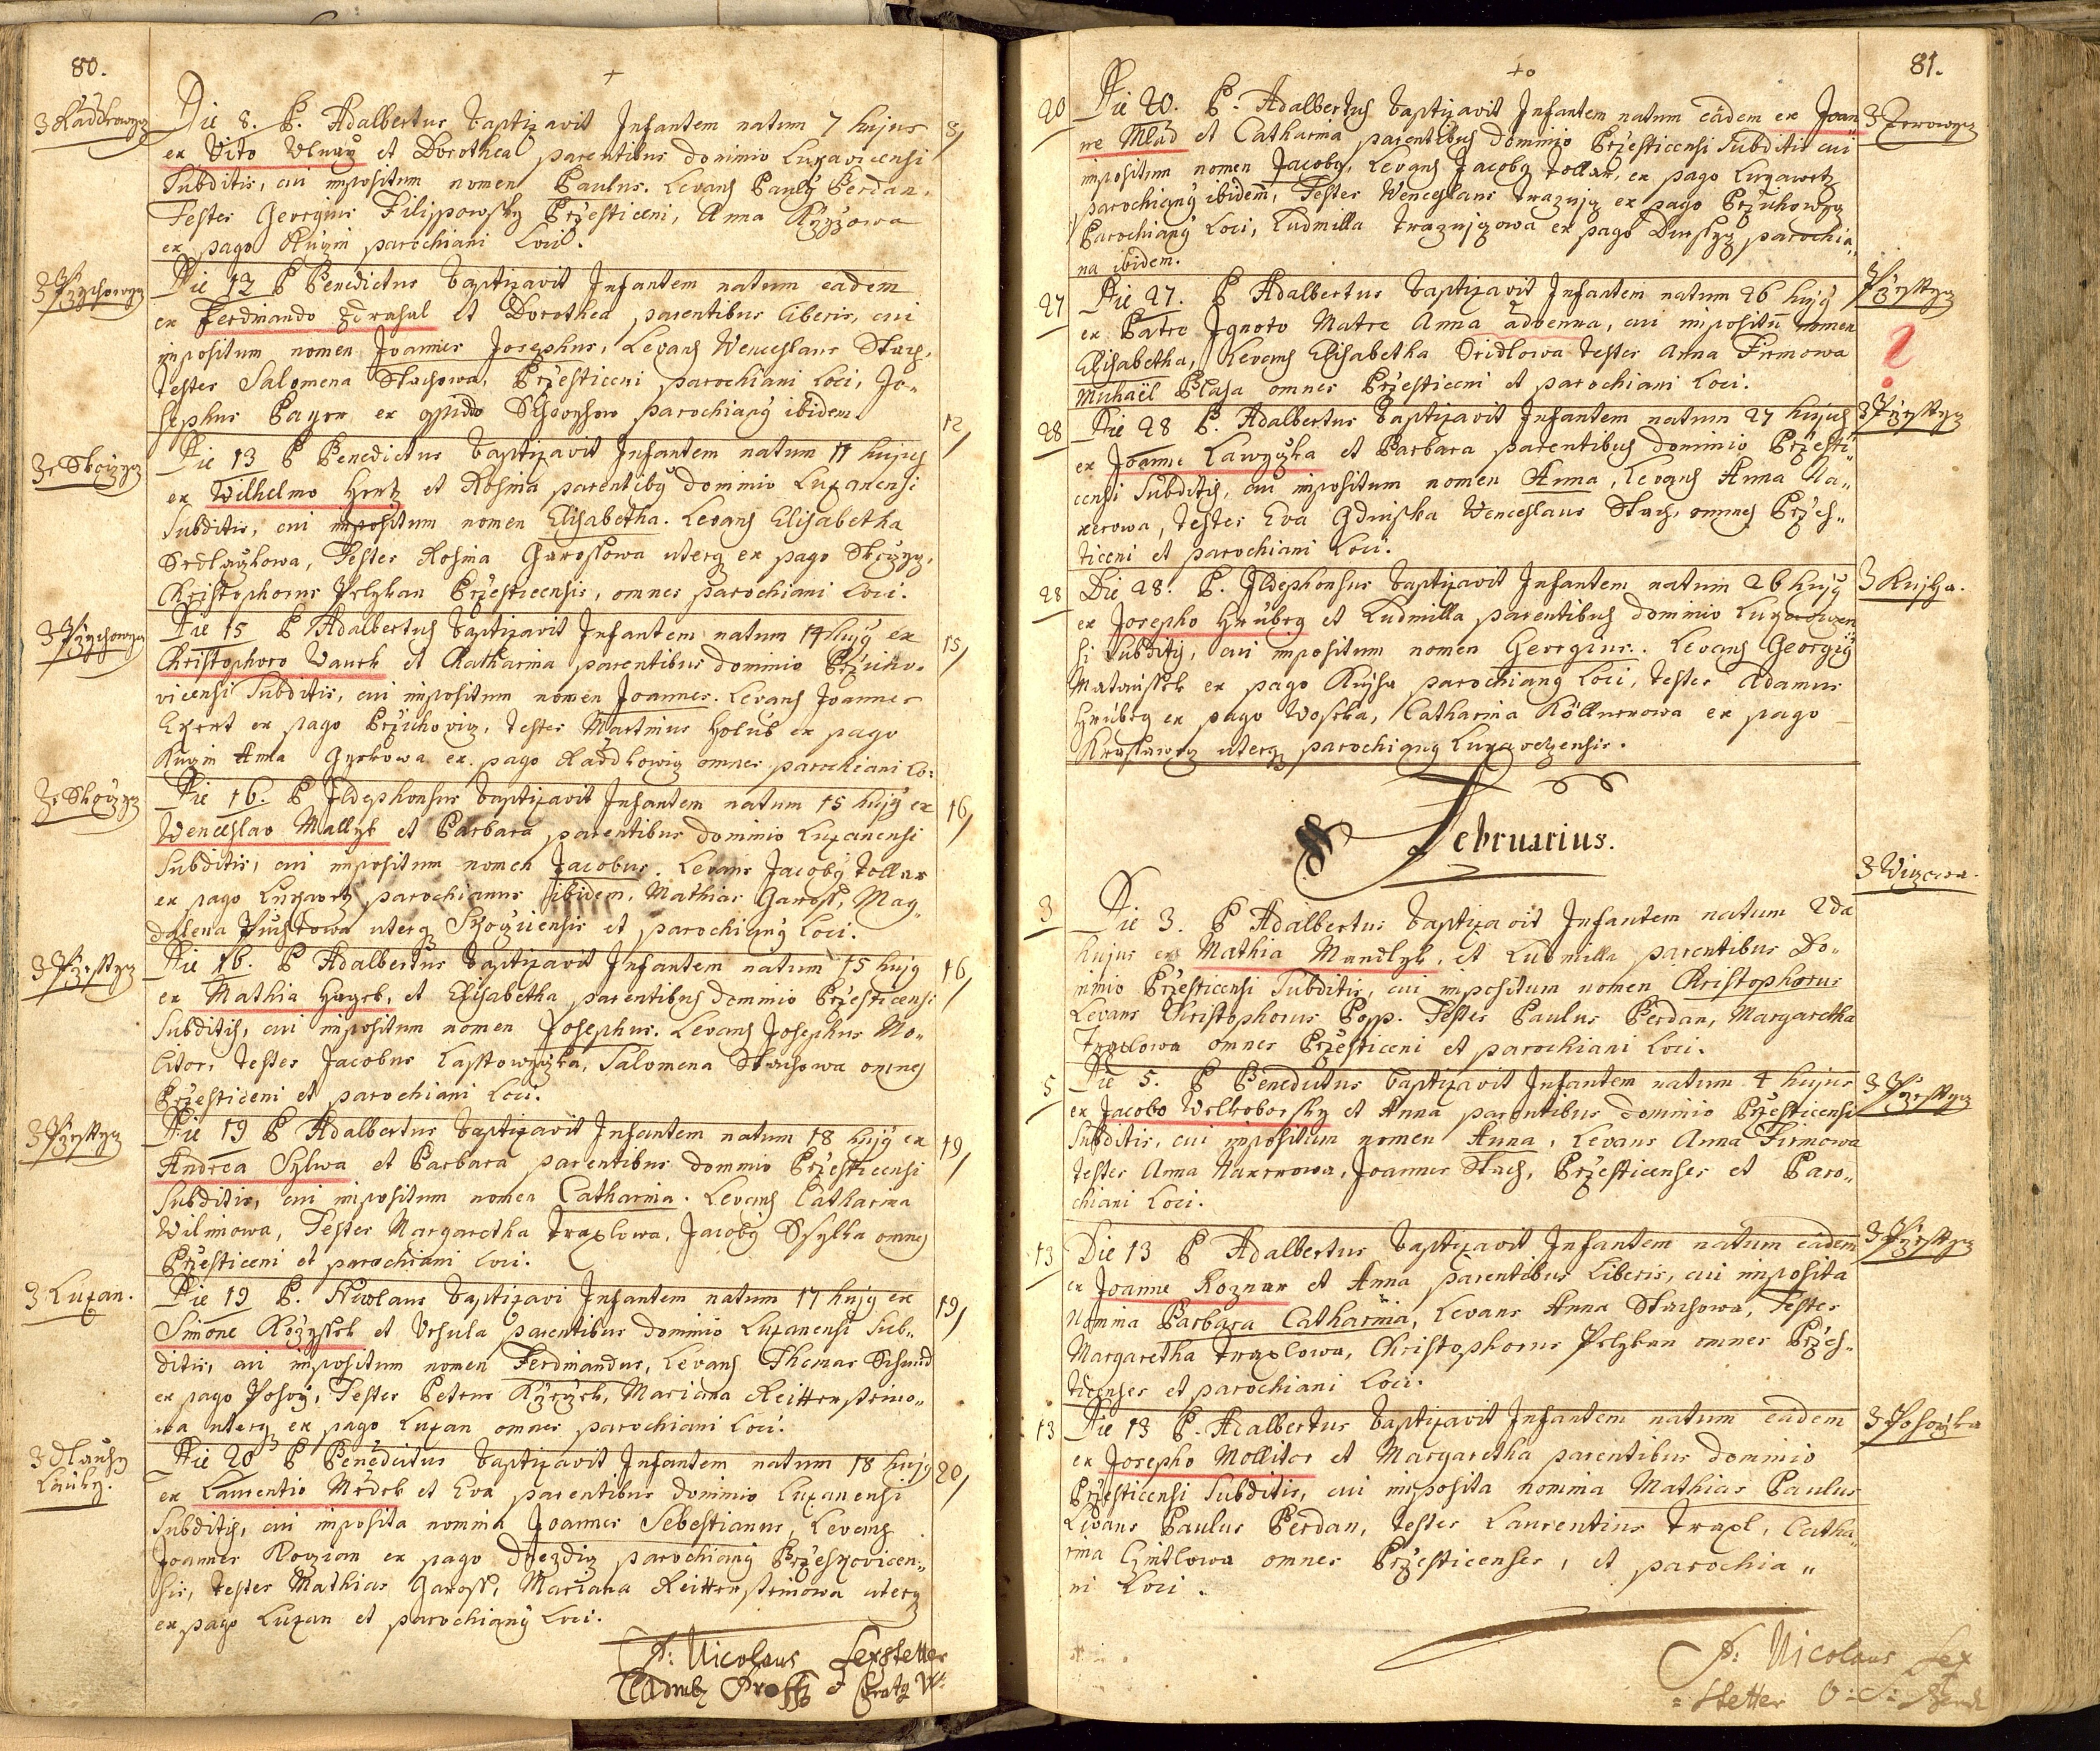 80.
+
Z Raddkowyz
Die 8. P. Adalbertus baptizavit Infantem natum 7 hujus 8/
ex Vito Ulnay et Dorothea parentibus dominio Luxavicensi
Subditis, cui impositum nomen Paulus. Levans Pauly Berdan.
Testes Georgius Filippowsky Przesticeni, Anna
ex pago parochiani Loci.
Z Przychowyz
Die 12 P Benedictus baptizavit Infantem natum eadem
ex Ferdinando Zdrahal et Dorothea parentibus liberis, cui
impositum nomen Joannes Josephus, Levans Wenceslaus Stach,
testes Salomena Stachowa, Przesticeni parochiani Loci, Jo-
sephus Payer ex oppido parochiany ibidem. 12/
Ze Skozyz
Die 13 P Benedictus baptizavit Infantem natum 11 hujus
ex Wilhelmo Hertz et Rosina parentiby dominio Luxanensi
Subditis, cui impositum nomen Elisabetha. Levans Elisabetha
Sedlaczkowa, Testes Rosina Garossowa uterq ex pago Skozyz,
Christophorus Pelzban Przesticensis, omnes parochiani Loci.
Z Przychowyz
Die 15 P Adalbertus baptizavit Infantem natum 14 hujy ex 15/
Christophoro Vanek et Catharina parentibus dominio Przicho-
vicensi Subditis, cui impositum nomen Joannes. Levans Joannes
Ekert ex pago Przichoviz, testes Martinus Holub ex pago
Anna ex pago Raddkowiz omnes parochiani Lo:
Ze Skozyz
Die 16. P Ildephonsus baptizavit Infantem natum 15 hujy ex 16/
Wenceslao Mallyk et Barbara parentibus dominio Luxanensi
Subditis, cui impositum nomen Jacobus. Levans Jacoby Tollar
ex pago Luxawetz parochianus ibidem, Mathias Gaross, Mag-
dalena uterq Skozicensis et parochiany Loci.
Z Przesstyz
Die 16. P Adalbertus baptizavit Infantem natum 15 hujy 16/
ex Mathia Hayek, et Elisabetha parentibus dominio Przesticensi
Subditis, cui impositum nomen Josephus. Levans Josephus Mo-
litor, testes Jacobus Lasstowyczka, Salomena Stachowa omnes
Przesticeni et parochiani Loci.
Z Przesstyz
Die 19 P Adalbertus baptizavit Infantem natum 18 hujy ex 19/
Andrea Sylwa et Barbara parentibus dominio Przesticensi
Subditis, cui impositum nomen Catharina. Levans Catharina
Wilimowa, Testes Margaretha Traxlowa, Jacoby Ssylha omnes
Przesticeni et parochiani Loci.
Z Luxan.
Die 19 P. Nicolaus baptizavi Infantem natum 17 hujy ex 19/
Simone et Ursula parentibus dominio Luxanensi Sub-
ditis, cui impositum nomen Ferdinandus, Levans Thomas Schmid
ex pago Testes Petrus Mariana Reittensteino-
wa uterq ex pago Luxan omnes parochiani Loci.
Z Dlauhy
Lauky.
Die 20 P Benedictus baptizavit Infantem natum 18 hujy 20/
ex Laurentio Medek et Eva parentibus dominio Luxanensi
Subditis, cui imposita nomina Joannes Sebestianus, Levans
Joannes ex pago Dnezdiz parochiany
sis, testes Mathias Gaross, Mariana Reittensteinowa uterq
ex pago Luxan et parochiany Loci.
P: Nicolaus Lexstetter
81.
20 Die 20. P. Adalbertus baptizavit Infantem natum eadem ex Joan Z Zerowyz
ne Mlad et Catharina parentibus dominio Przesticensi Subditis cui
impositum nomen Jacoby, Levans Jacoby Tollar, ex pago Luxawetz
parochiany ibidem, Testes Wenceslaus ex pago Przichowyz
Parochiany Loci, Ludmilla ex pago parochia-
na ibidem.
27 Die 27. P Adalbertus baptizavit Infantem natum 26 hujy Z Przesstyz
ex Patre Ignoto Matre Anna advenna, cui impositu nomen
Elisabetha, Levans Elisabetha Sridlowa testes Anna Firmowa
Michaël Blaha omnes Przesticeni et parochiani Loci.
28 Die 28 P. Adalbertus baptizavit Infantem natum 27 hujus Z Przesstyz
ex Joanne Lawyczka et Barbara parentibus dominio Przesti-
censi Subditis, cui impositum nomen Anna, Levans Anna Na-
xerowa, testes Eva Wenceslaus Stach, omnes Przes-
ticeni et parochiani Loci.
28 Die 28. P. Ildephonsus baptizavit Infantem natum 26 hujy Z Kucha.
ex Josepho Hruby et Ludmilla parentibus dominio Luxawicen
si Subditis, cui impositum nomen Georgius. Levans Georgiy
Mataussek ex pago parochiany Loci, testes Adamus
Hruby ex pago Catharina Köllnerowa ex pago
uterq parochiany Luxavecensis.
Februarius.
3 Die 3. P Adalbertus baptizavit Infantem natum 2da Z Wizowa.
hujus ex Mathia Mandlyk, et Ludmilla parentibus Do-
minio Przesticensi Subditis, cui impositum nomen Christophorus
Levans Christophorus Popp. Testes Paulus Berdan, Margaretha
Traxlowa omnes Przesticeni et parochiani Loci.
5 Die 5. P Benedictus baptizavit Infantem natum 4 hujus Z Przesstyz
ex Jacobo Welkoborsky et Anna parentibus dominio Przesticensi
Subditis, cui impositum nomen Anna, Levans Anna Firmowa
testes Anna Naxerowa, Joannes Stach, Przesticenses et Paro-
chiani Loci.
13 Die 13 P Adalbertus baptizavit Infantem natum eadem Z Przesstyz
ex Joanne Roznar et Anna parentibus Liberis, cui imposita
Nomina Barbara Catharina, Levans Anna Stachowa, Testes
Margaretha Traxlowa, Christophorus Pelzban omnes Przes-
ticenses et parochiani Loci.
13 Die 13 P. Adalbertus baptizavit Infantem natum eadem
ex Josepho Mollitor et Margaretha parentibus dominio
Przesticensi Subditis, cui imposita nomina Mathias Paulus
Levans Paulus Berdan, testes Laurentius Traxl, Catha-
rina omnes Przesticenses, et parochia-
ni Loci.
P: Nicolaus Lex
=stetter O: S: